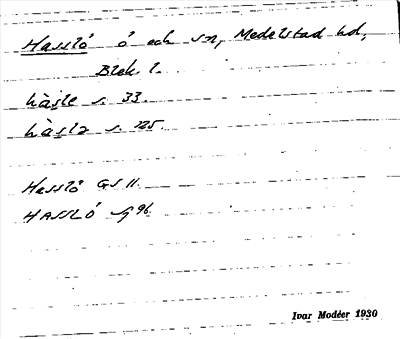 Hasslö ö och sn, Medelstad hd,
Blek. l.
hàsle s. 33.
hàsla s. 125.
Hesslö GS 11.
HASSLÖ 96
Ivar Modéer 1930